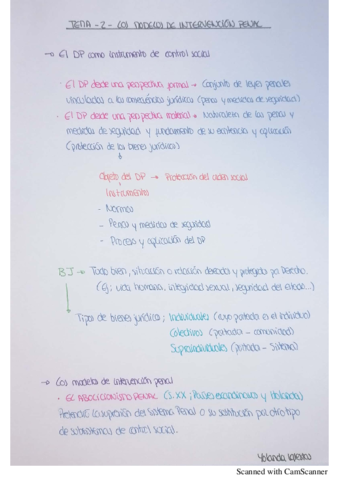 TEMA - 2 - LOS MODELOS DE INTERVENCIÓN PENAL
→ El DP como instrumento de control social
· El DP desde una perspectiva formal → Conjunto de leyes penales
vinculadas a las consecuencias jurídicas (penas y medidas de seguridad)
· El DP desde una perspectiva material → Naturaleza de las penas y
medidas de seguridad y fundamento de su existencia y aplicación
(protección de los bienes jurídicos)
Objeto del DP → Protección del orden social
Instrumentos
- Normas
- Penas y medidas de seguridad
- Proceso y aplicación del DP
BJ → Todo bien, situación o relación deseada y protegida por Derecho.
(Ej; vida humana, integridad sexual, seguridad del estado...)
Tipos de bienes jurídicos; Individuales (cuyo portador es el individuo)
Colectivos (portador - comunidad)
Supraindividuales (portador - Sistema)
→ Los modelos de intervención penal
· EL ABOLICIONISMO PENAL (S. XX; Países escandinavos y Holanda)
Pretende: La supresión del Sistema Penal o su sustitución por otro tipo
de subsistemas de control social.
Yolanda Iglesias
Scanned with CamScanner